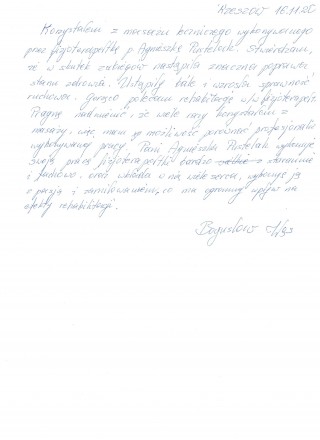 Rzeszów 16.11.00
Korzystałem z masażu leczniczego wykonywanego
przez fizjoterapeutkę p. Agnieszkę Pustelak. Stwierdzam,
że w skutek zabiegów nastąpiła znaczna poprawa
stanu zdrowia. Ustąpiły bóle i wzrosła sprawność
ruchowa. Gorąco polecam rehabilitację u w/w fizjoterapeutki.
Pragnę nadmienić, że wiele razy korzystałem z
masaży, więc mam możliwość porównać profesjonalnie
wykonywaną pracę. Pani Agnieszka Pustelak wykonuje
swoją pracę fizjoterapeutki bardzo starannie
i fachowo oraz wkłada w nią wiele serca, wykonuje ją
z pasją i zamiłowaniem, co ma ogromny wpływ na
efekty rehabilitacji.
Bogusław